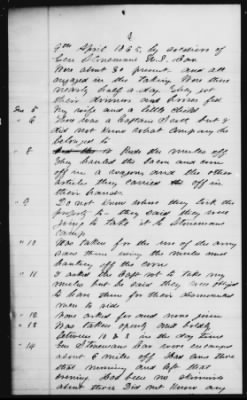 2
9th April 1865, by soldiers of
Gen Stonemans U.S. Army
Were about 30 present - and all
engaged in the taking. Were there
nearly half a day. They got
their dinners and horses fed
My wife and a little child
There was a Captain Scott but I
did not know what company he
belonged to
Rode the mules off
They hauled the bacon and corn
off in a wagon and the other
articles they carried off in
their hands
Do not know where they took the
property to - they said they were
going to take it to Stonemans
camp
Was taken for the use of the army
saw them using the mules and
hauling off the corn
I asked the Capt not to take my
mules but he said they were obliged
to have them for their dismounted
men to ride
None asked for and none given
Was taken openly and boldly
between 10 & 2 in the day time
Gen Stonemans was encamped
about 6 miles off. Had come there
that morning and left that
evening. Had been no skirmish
about there Did not know any
No 5
" 6
" 8
" 9
" 10
" 11
" 12
" 13
" 14